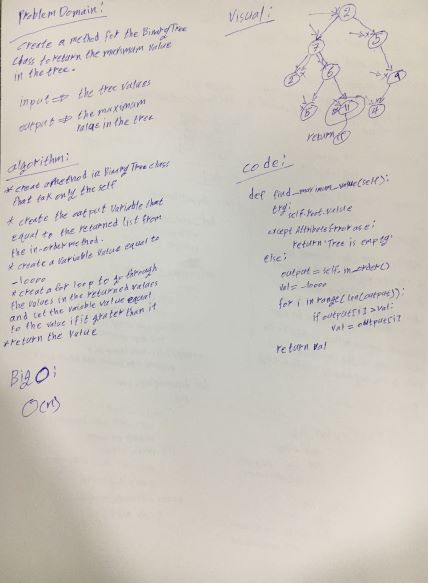 Problem Domain:
Create a method for the Binary Tree
class to return the maximum value
in the tree.
input => the tree values
output => the maximum
value in the tree
algorithm:
* creat a method in Binary Tree class
that tak only the self
* create the output variable that
equal to the returned list from
the in-order method.
* create a variable value equal to
-10000
* creat a for loop to go through
the values in the returned values
and set the variable value equal
to the value if it grater than it
* return the value
Big O:
O(n)
Visual:
2
7
5
2
6
9
5
11
4
return
code:
def find_maximum_value(self):
try:
self.root.value
except AttributeError as e:
return 'Tree is empty'
else:
output = self.in_order()
val = -10000
for i in range(len(output)):
if output[i] > val:
val = output[i]
return val